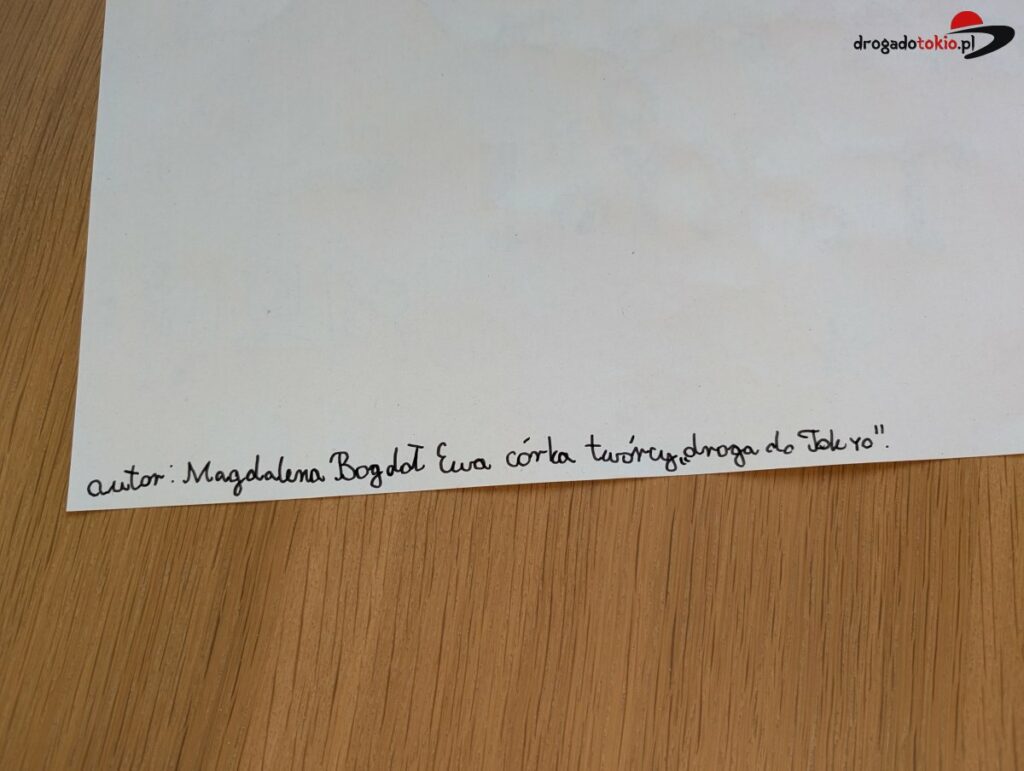 drogadotokio.pl
autor: Magdalena Bogdoł Ewa córka twórcy „droga do Tokyo".